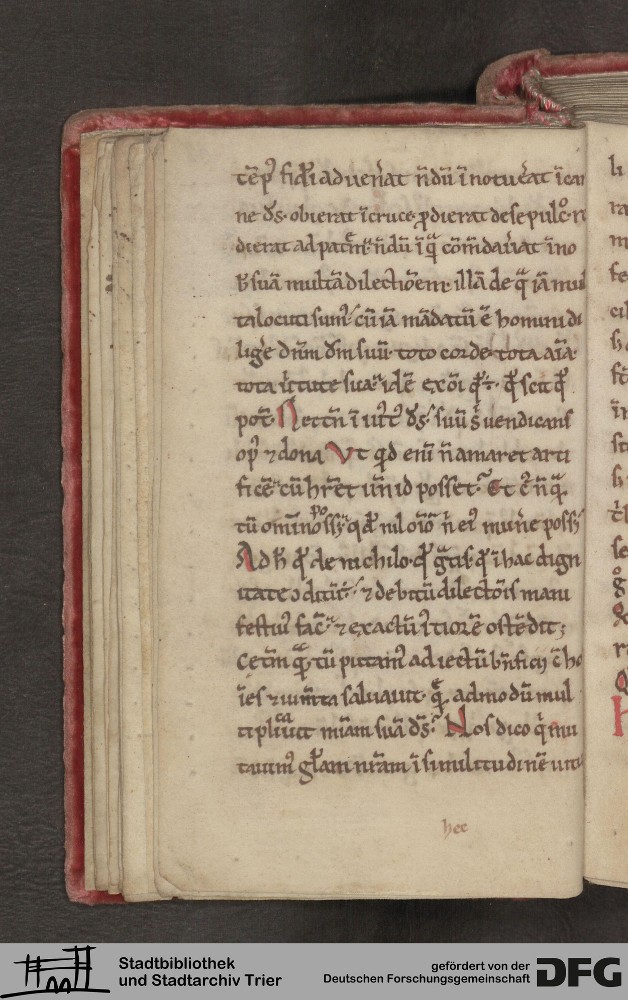 tēpꝰ fidei advenͥat n̄dū ī notuͥat ī car
ne d̄s. obierat ī cruce. ꝓdierat de sepulcͦ. r
dierat ad patrē. n̄dū ī q̄ cōmdavͥat ī no
bͥ suā multā dilectōem. illā de q̄ iā mul
ta locuti sumꝰ. cū iā mādatū ē homini di
ligͥe dn̄m dm̄ suū. toto corde. tota aīa.
tota vͥtute sua. idē ex oī qͩ ē. qͩ scit qͩ
pot̄. Nec tn̄ ī iustꝰ d̄s. suū sͥ vendicans
opꝰ ⁊ dona Ut quid enī n̄ amaret arti
ficē. cū hr̄et un̄ id posset. Et cͥ n̄ q̄
tū omīno possꝫ. qͩ nil oīo n̄ eiꝰ munͥe possꝫ
Ad h̄ qͩ de nichilo. qͩ gͣtis. qͩ ī hac dign
itate ↄditū. ⁊ debitū dilectōis mani
festiꝰ fac̄. ⁊ exactū iꝰtiorē ostēdit;
Cetm̄ qͣ tū putamꝰ adiectū bn̄ficij cͥ ho
īes ⁊ iumta salvavit. qͣ admodū mul
tiplicavit mīam suā d̄s. Nos dico qͥ mu
tavimꝰ gl̄am nr̄am ī similitudinē vitu
hec
Stadtbibliothek
und Stadtarchiv Trier
gefördert von der
Deutschen Forschungsgemeinschaft
DFG